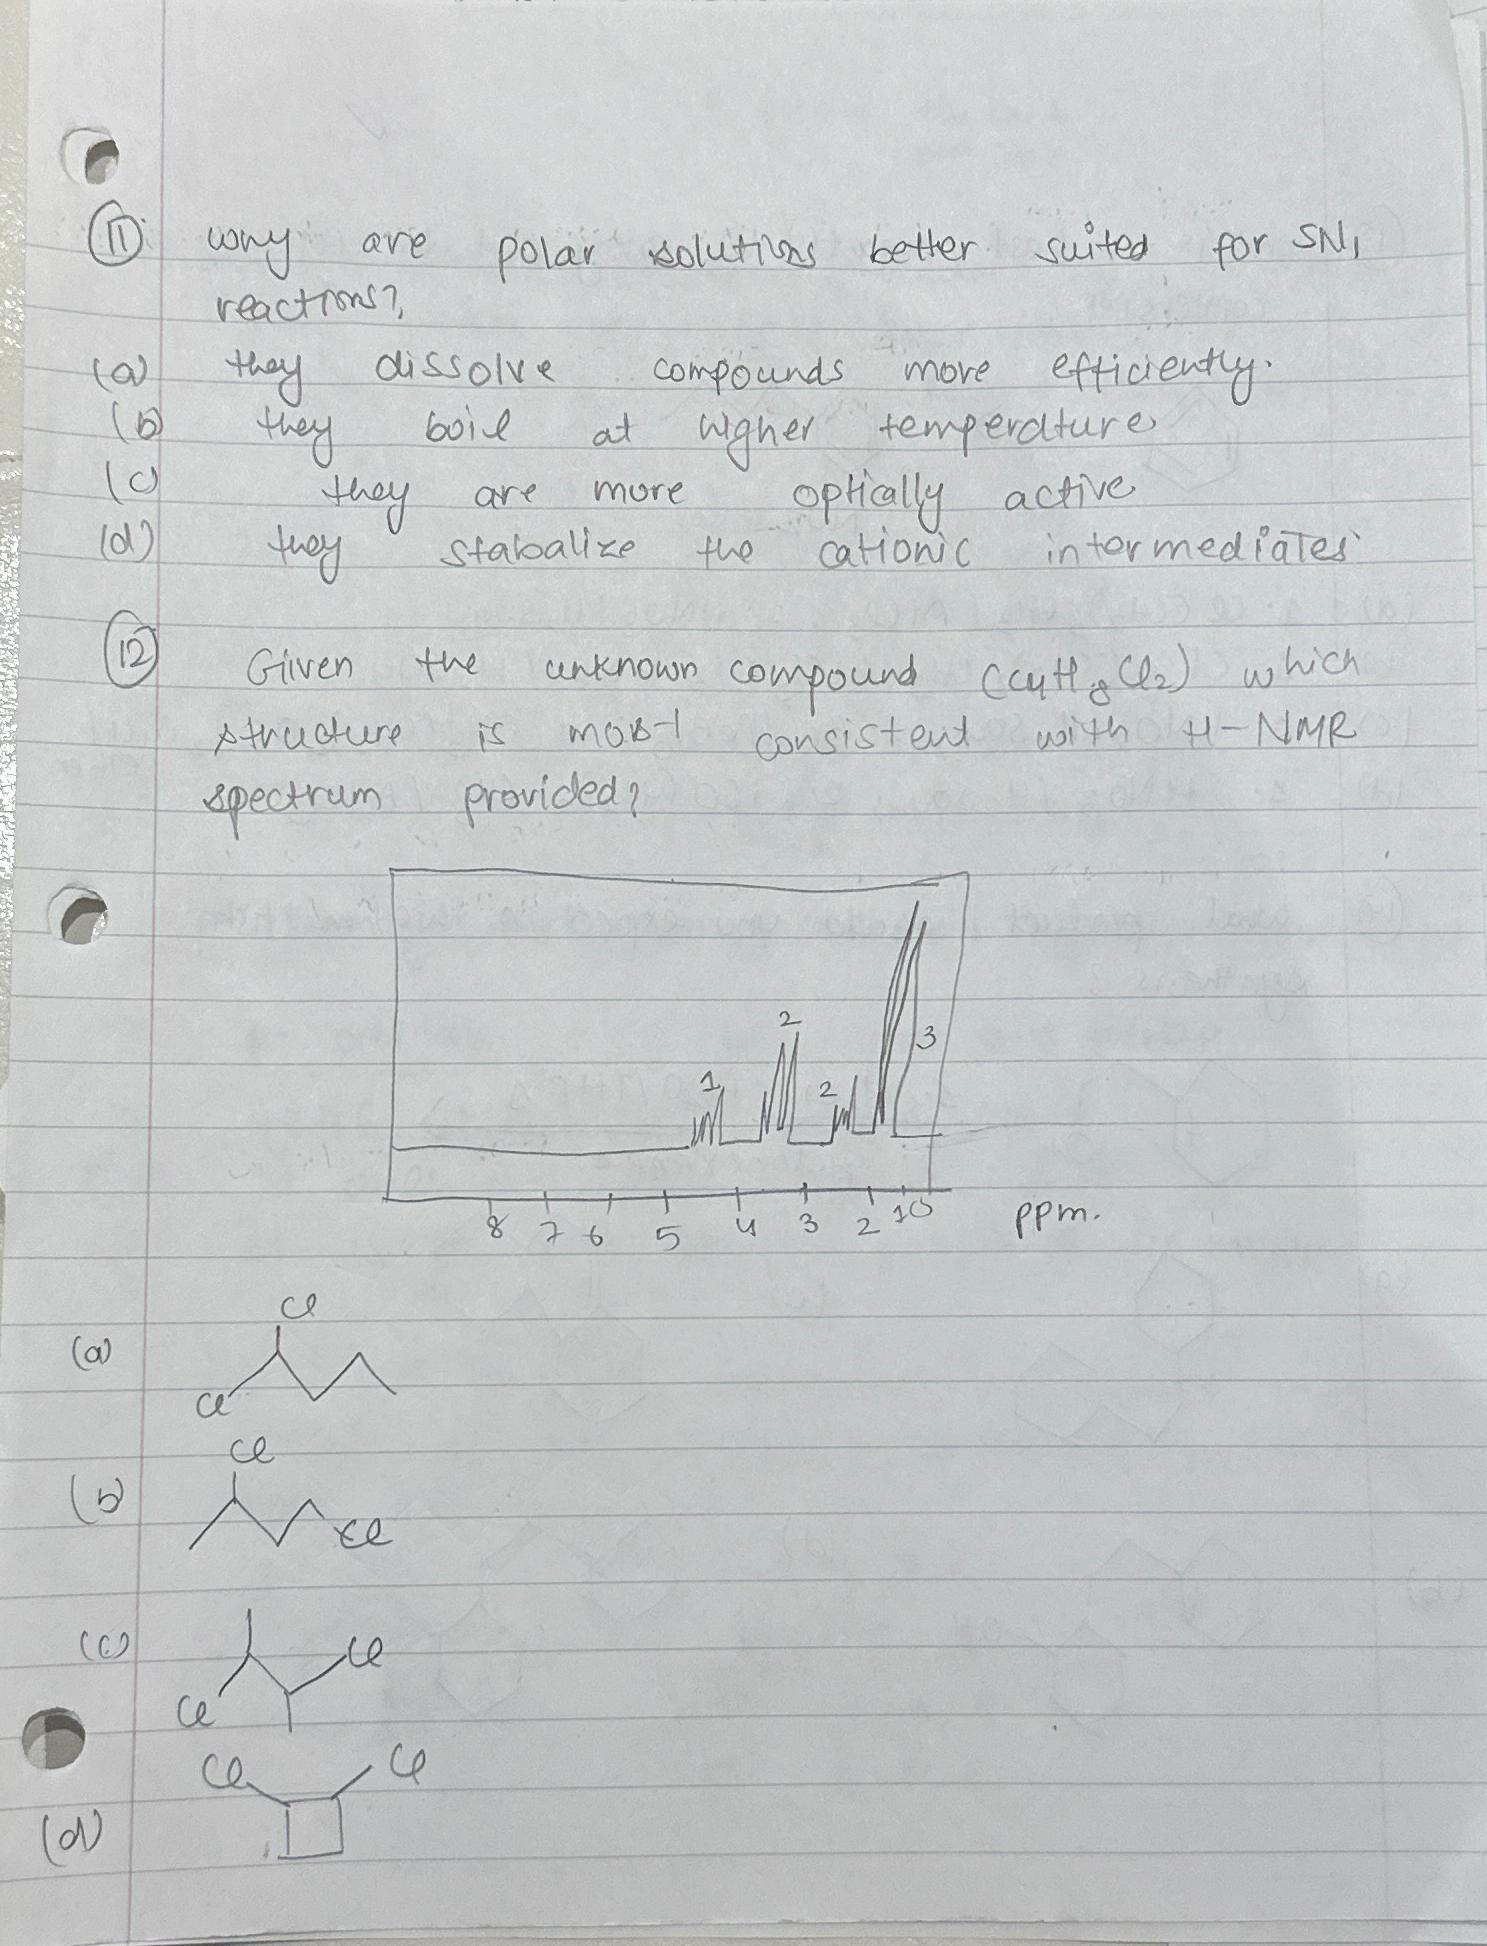 11 why are polar solutions better suited for SN1
reactions?
(a) they dissolve compounds more efficiently.
(b) they boil at higher temperature
(c) they are more optically active
(d) they stabalize the cationic intermediates
12 Given the unknown compound (C4H8Cl2) which
structure is most consistent with H-NMR
spectrum provided?
2
1
2
3
8 7 6 5 4 3 2 1 0 ppm.
(a)
Cl
Cl
(b)
Cl
Cl
(c)
Cl
Cl
(d)
Cl
Cl